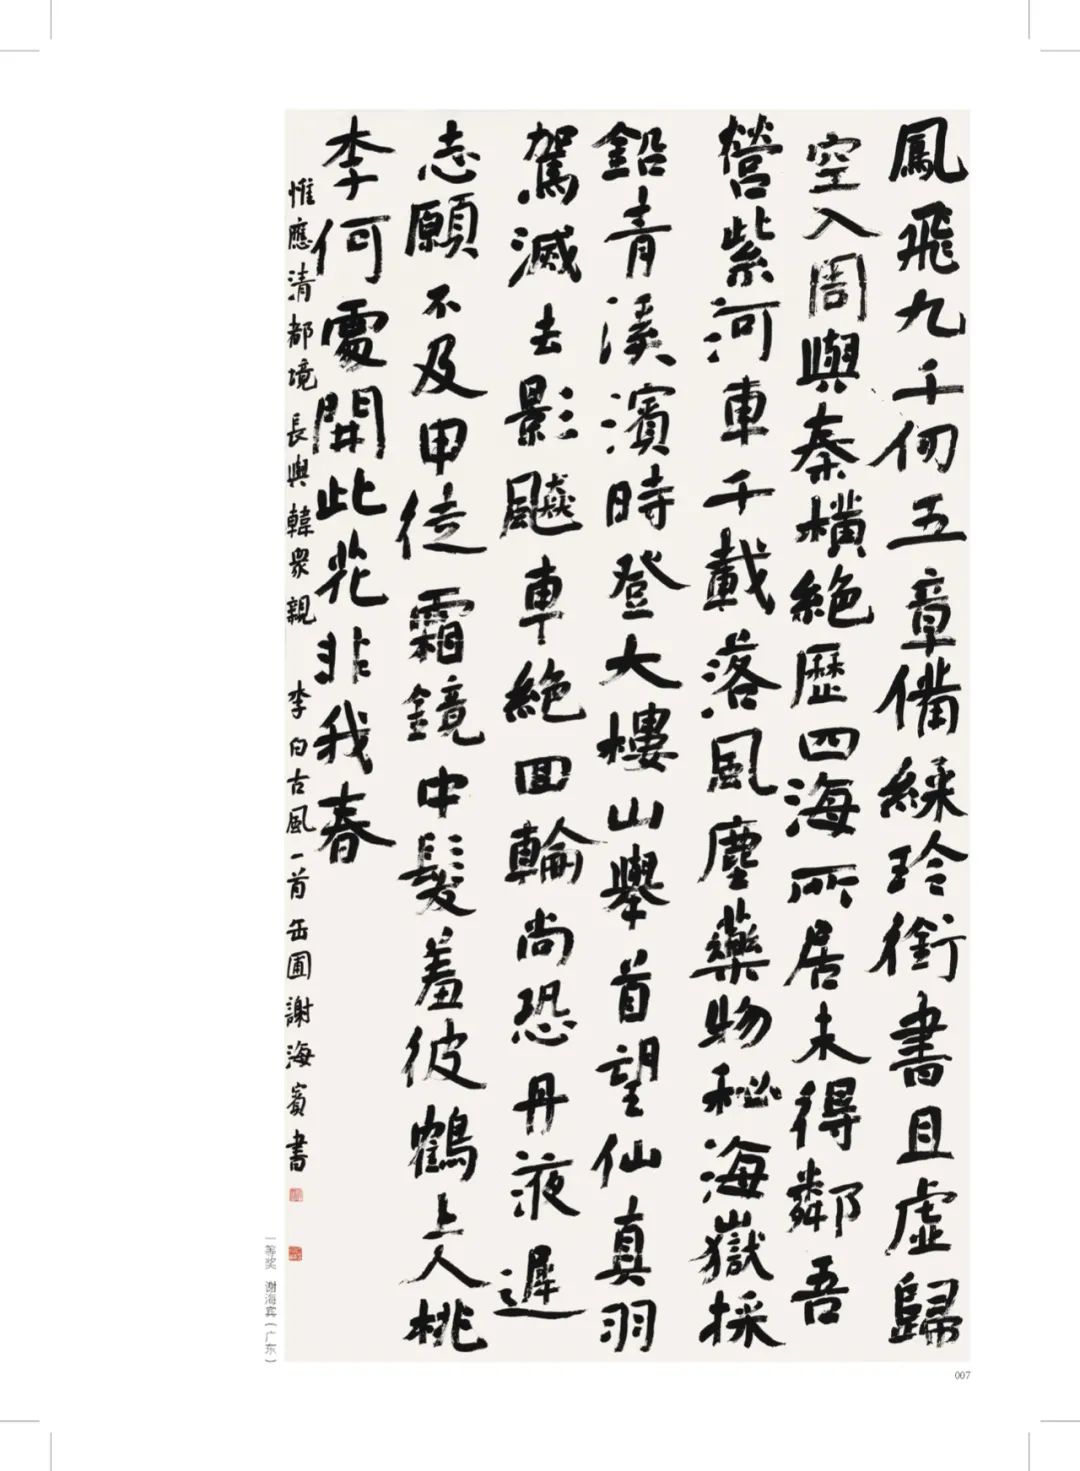 鳳飛九千仞五章備綵珍銜書且虛歸
空入周與秦橫絕歷四海所居未得鄰吾
營紫河車千載落風塵藥物秘海嶽採
鉛青溪濱時登大樓山舉首望仙真羽
駕滅去影飇車絕回輪尚恐丹液遲
志願不及申徒霜鏡中髮羞彼鶴上人桃
李何處開此花非我春
惟應清都境長與韓眾親 李白古風一首缶圃謝海賓書
一等奖 谢海宾（广东）
007